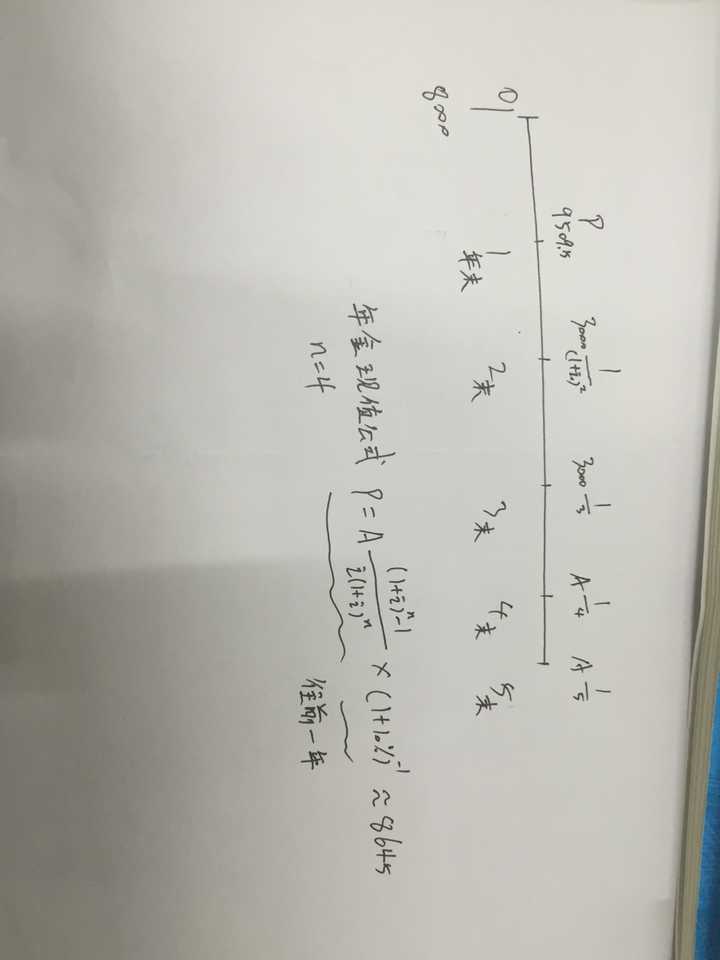 P 3000 1/(1+i)² 3000 1/3 A 1/4 A 1/5
9509.5
0 1年末 2末 3末 4末 5末
8000
年金现值公式 P = A ((1+i)ⁿ-1)/(i(1+i)ⁿ) × (1+10%)⁻¹ ≈ 8645
n=4 往前一年